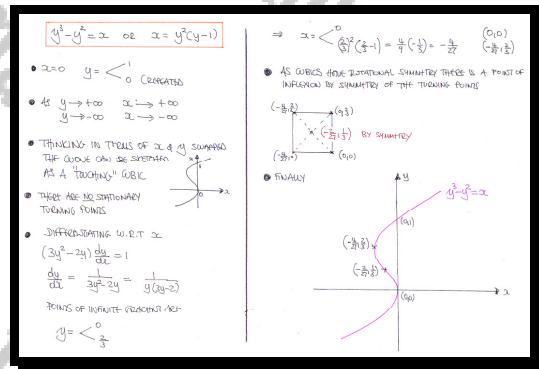 y³-y²=x OR x=y²(y-1)
• x=0 y=< 1
0 (REPEATED)
• AS y→+∞ x→+∞
y→-∞ x→-∞
• THINKING IN TERMS OF x & y SWAPPED
THE CURVE CAN BE SKETCHED
AS A "TOUCHING" CUBIC
• THERE ARE NO STATIONARY
TURNING POINTS
• DIFFERENTIATING W.R.T x
(3y²-2y) dy/dx = 1
dy/dx = 1/(3y²-2y) = 1/(y(3y-2))
POINTS OF INFINITE GRADIENT ARE
y=< 0
2/3
⇒ x=< 0 (0,0)
(2/3)²(2/3-1) = 4/9(-1/3) = -4/27 (-4/27,2/3)
• AS CUBICS HAVE ROTATIONAL SYMMETRY THERE IS A POINT OF
INFLEXION BY SYMMETRY OF THE TURNING POINTS
(-4/27,2/3) (0,2/3)
(-2/27,1/3) BY SYMMETRY
(-4/27,0) (0,0)
• FINALLY
y
y³-y²=x
(0,1)
(-4/27,2/3)
(-2/27,1/3)
x
(0,0)